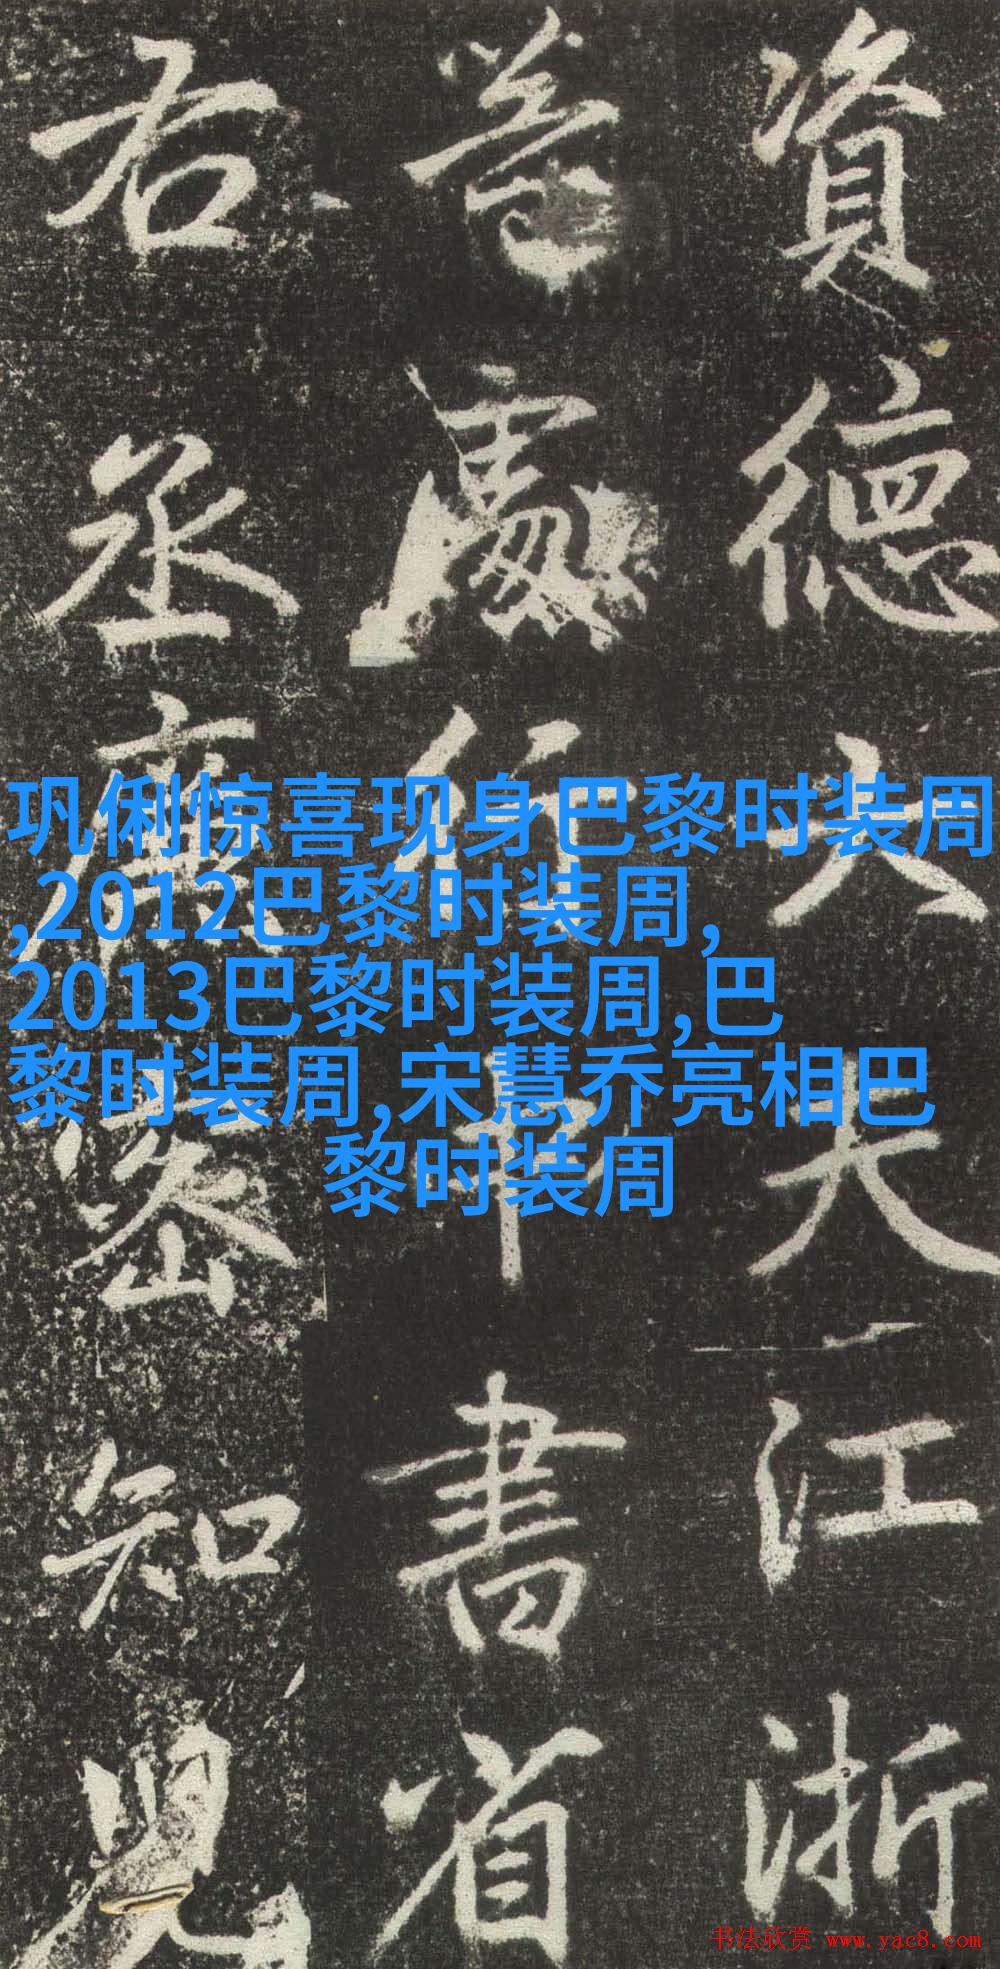 資德大夫江浙
等處行中書省
右丞廉密知兒
巩俐惊喜现身巴黎时装周
,2012巴黎时装周,
2013巴黎时装周,巴
黎时装周,宋慧乔亮相巴
黎时装周
书法欣赏 www.yac8.com